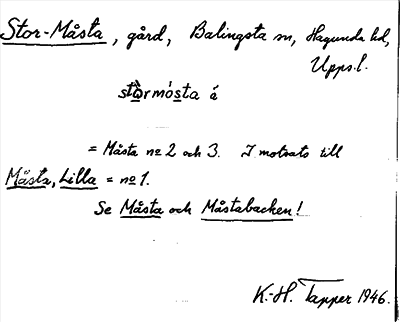 Stor-Måsta, gård, Balingsta sn, Hagunda hd,
Upps.l.
stòrmósta á
= Måsta no 2 och 3. I motsats till
Måsta, Lilla = no 1.
Se Måsta och Måstabacken!
K.-H. Tapper 1946.